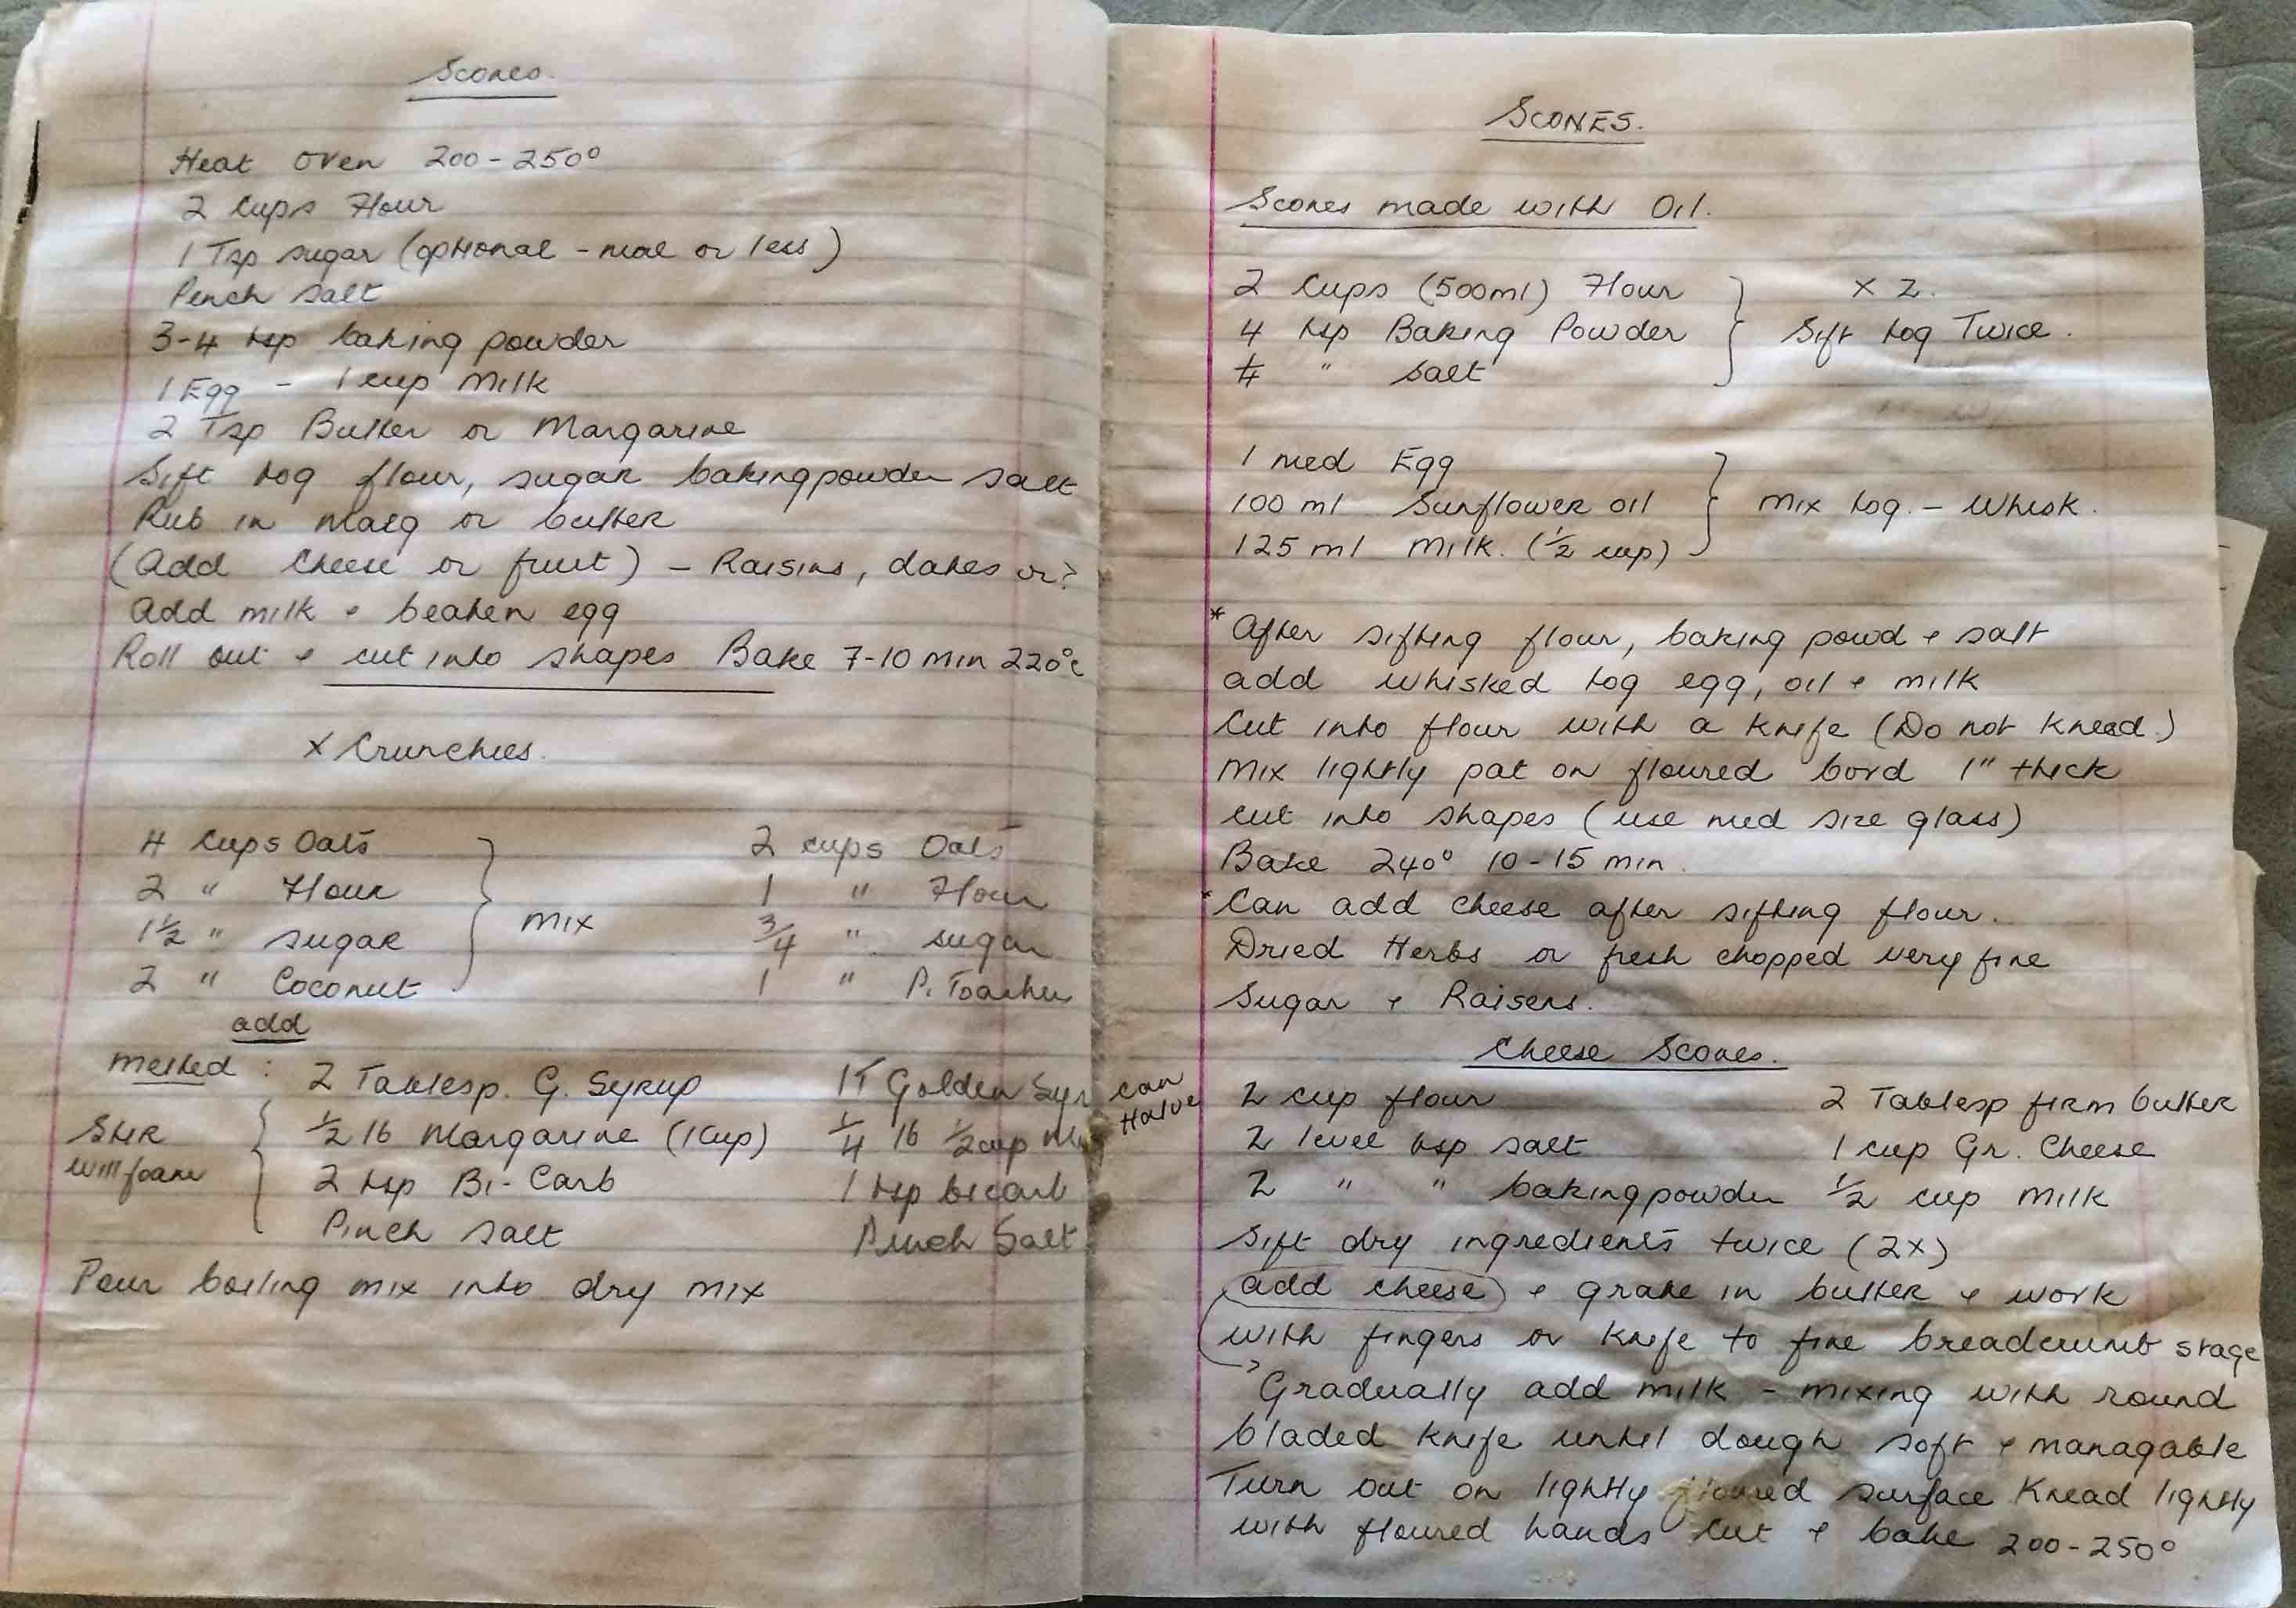 Scones.
Heat oven 200-250°
2 Cups Flour
1 Tsp sugar (optional - more or less)
Pinch salt
3-4 tsp baking powder
1 Egg - 1 cup Milk
2 Tsp Butter or Margarine
Sift tog flour, sugar bakingpowder salt
Rub in Marg or butter
(Add Cheese or fruit) - Raisins, dates or?
Add milk + beaten egg
Roll out + cut into shapes Bake 7-10 min 220°c
x Crunchies.
4 Cups Oats
2 " Flour
1½ " sugar
2 " Coconut
mix
2 cups Oats
1 " Flour
¾ " sugar
1 " P. Toasties
add
melted :
2 Tablesp. G. Syrup
½ lb Margarine (1Cup)
2 tsp Bi-Carb
Pinch salt
Stir
will foam
1T Golden Syr
¼ lb ½cup M
1 tsp bicarb
Pinch Salt
can
Halve
Pour boiling mix into dry mix
SCONES.
Scones made with Oil.
2 Cups (500ml) Flour
4 tsp Baking Powder
¼ " salt
x 2.
Sift tog Twice.
1 med Egg
100 ml Sunflower oil
125 ml Milk. (½ cup)
Mix tog. - Whisk.
* After sifting flour, baking powd + salt
add whisked tog egg, oil + milk
Cut into flour with a knife (Do not knead.)
Mix lightly pat on floured bord 1" thick
cut into shapes (use med size glass)
Bake 240° 10-15 min.
* Can add cheese after sifting flour.
Dried Herbs or fresh chopped very fine
Sugar + Raisens.
Cheese Scones.
2 cup flour
2 level tsp salt
2 " " bakingpowder
2 Tablesp firm butter
1 cup Gr. Cheese
½ cup milk
Sift dry ingredients twice (2x)
add cheese + grate in butter + work
with fingers or knife to fine breadcrumb stage
Gradually add milk - mixing with round
bladed knife until dough soft + managable
Turn out on lightly floured surface Knead lightly
with floured hands Cut + bake 200-250°